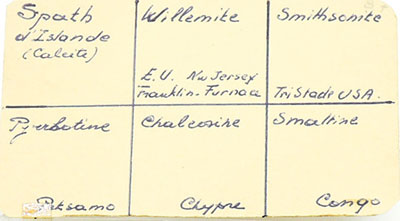 Spath
d'Islande
(Calcite)
Willemite
E.U. New Jersey
Franklin-Furnace
Smithsonite
TriStade USA.
Pyrrhotine
Petsamo
Chalcosine
Chypre
Smaltine
Congo